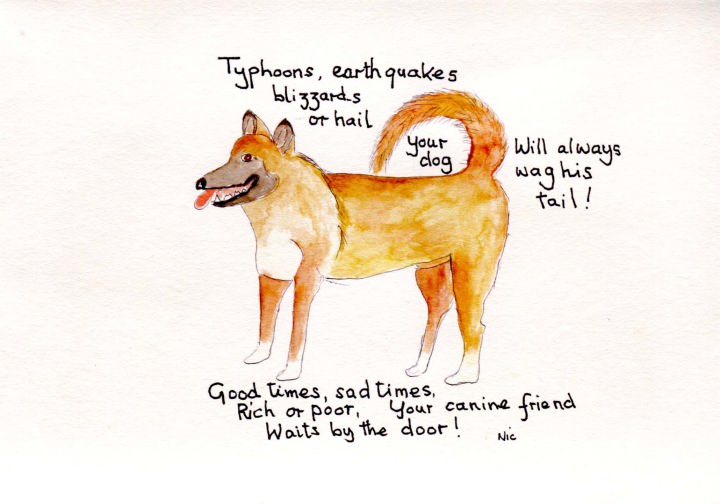 Typhoons, earthquakes
blizzards
or hail
your
dog
Will always
wag his
tail!
Good times, sad times,
Rich or poor, Your canine friend
Waits by the door!
Nic